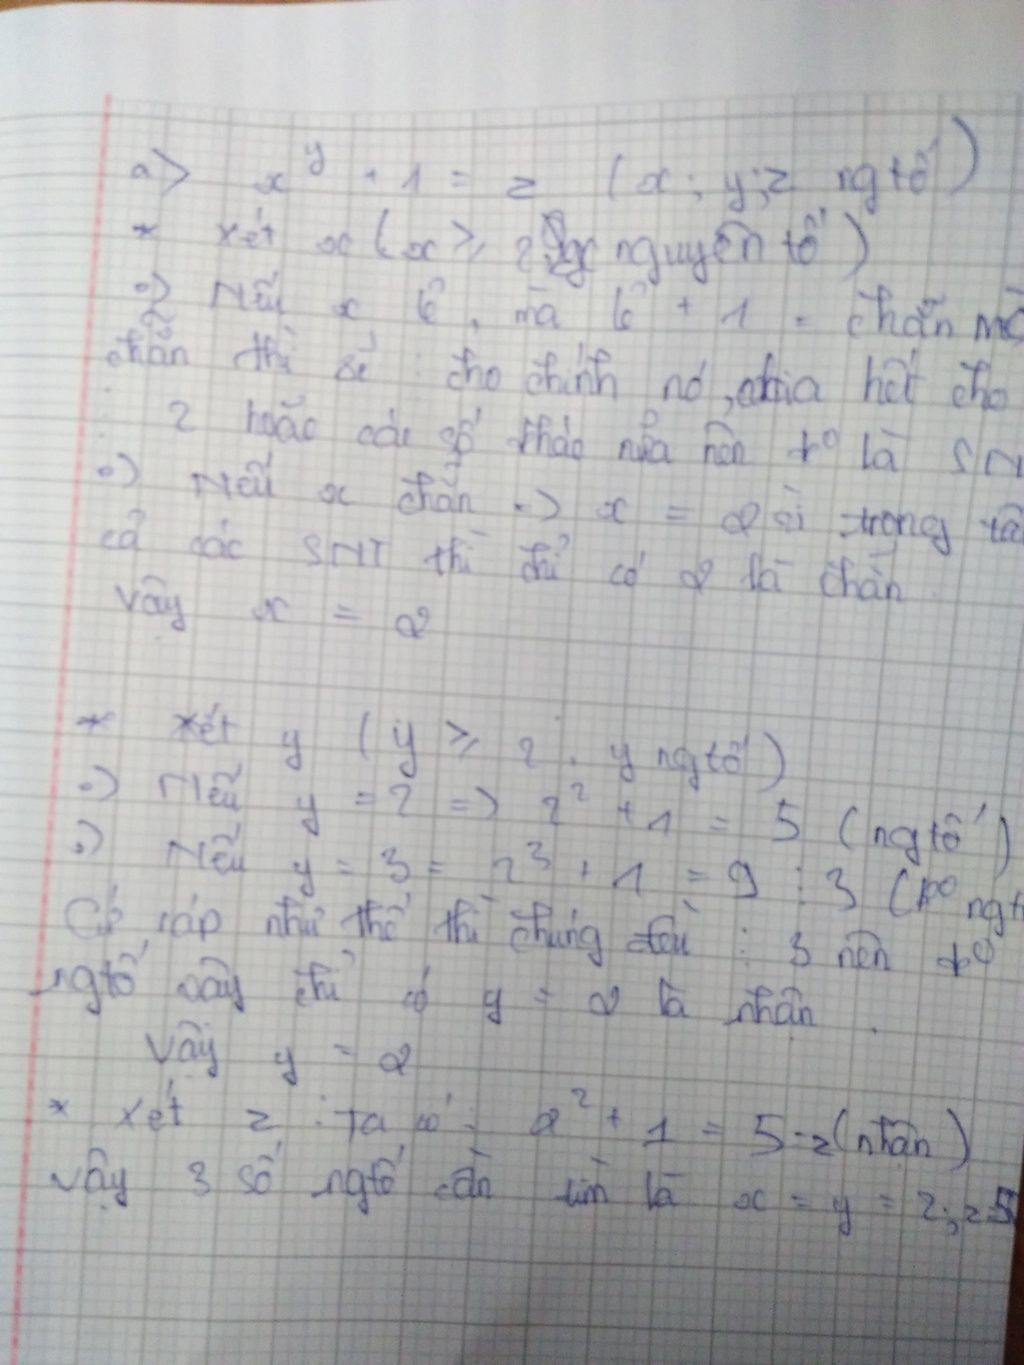 a) x^y + 1 = z (x; y; z ngtố)
* xét x (x ≥ 2 nguyên tố)
•) Nếu x lẻ, mà lẻ + 1 = chẵn mà
chẵn thì sẽ ⋮ cho chính nó, chia hết cho
2 hoặc các số khác nữa nên k° là SN
•) Nếu x chẵn => x = 2 vì trong tất
cả các SNT thì chỉ có 2 là chẵn.
Vậy x = 2
* xét y (y ≥ 2, y ngtố)
•) Nếu y = 2 => 2² + 1 = 5 (ngtố)
•) Nếu y = 3 = 2³ + 1 = 9 ⋮ 3 (k° ngt
Cứ như thế thì chúng đều ⋮ 3 nên k°
ngtố vậy chỉ có y = 2 là nhận.
Vậy y = 2
* xét z : Ta có : 2² + 1 = 5 = z (nhận)
Vậy 3 số ngtố cần tìm là x = y = 2; z = 5